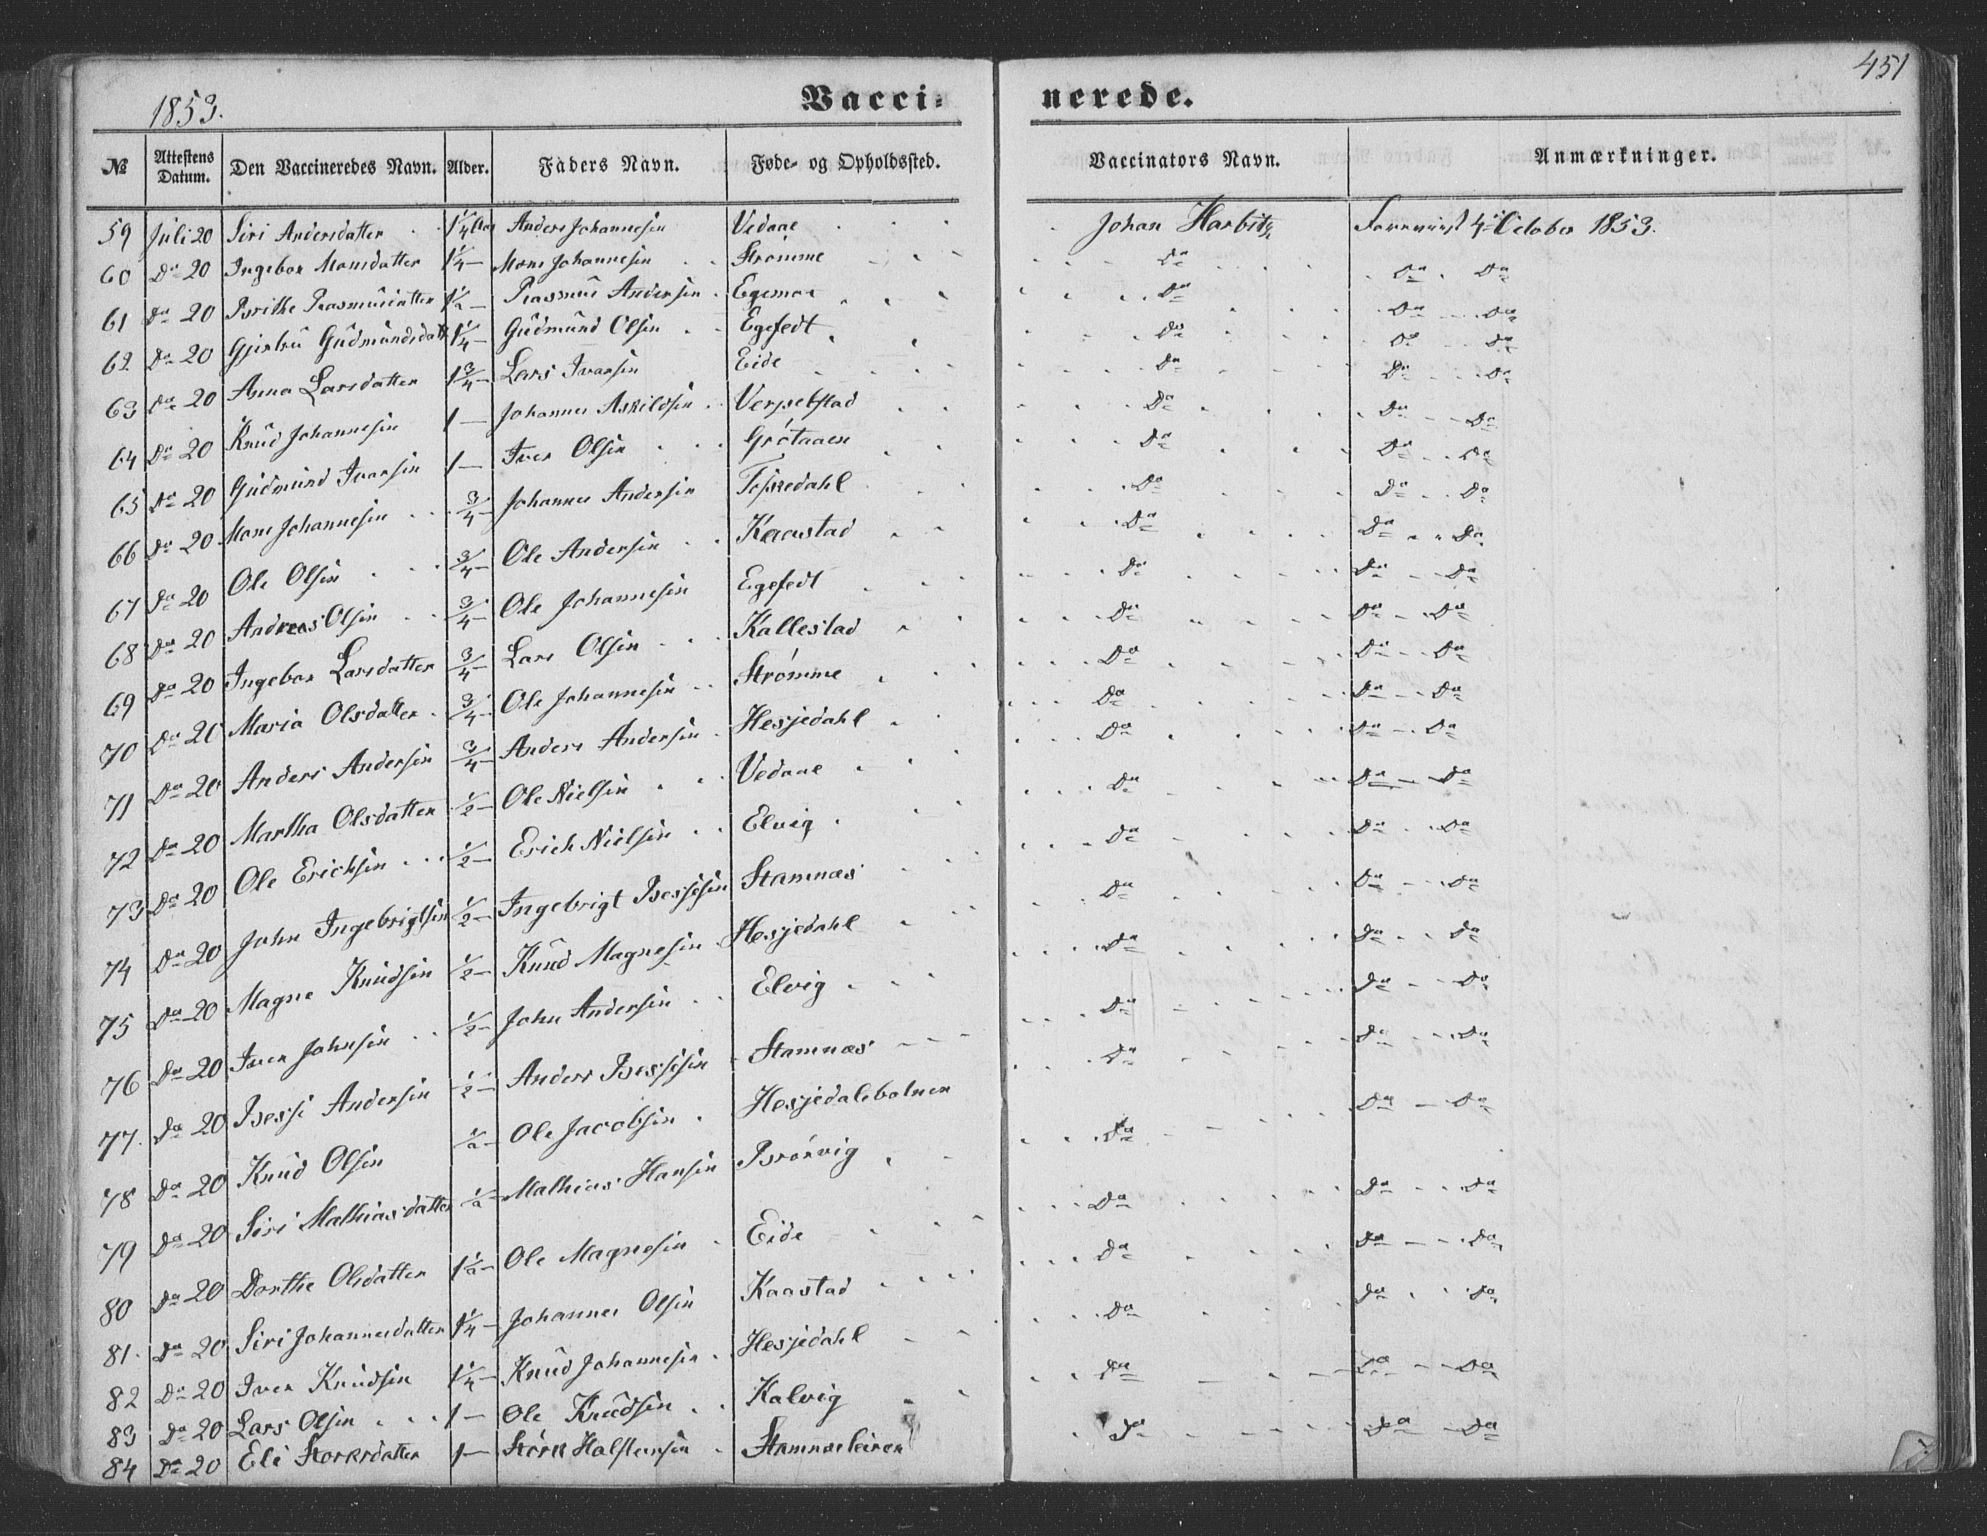 451
1853.
Vacci- nerede.
№ Attestens Datum. Den Vaccineredes Navn. Alder. Faders Navn. Føde- og Opholdssted. Vaccinators Navn. Anmærkninger.
59 Juli 20 Siri Andersdatter 1 1/4 Aar Anders Johannesen Vedaae Johan Harbitz 4 October 1853.
60 Do 20 Ingebor Monsdatter 1 1/4 - Mons Johannesen Strømme Do Do Do
61 Do 20 Brithe Rasmusdatter 1 1/2 - Rasmus Andersen Do Do Do
62 Do 20 Gudmundsdatt 1 1/4 - Gudmund Olsen Egefedt Do Do Do
63 Do 20 Anna Larsdatter 1 3/4 - Lars Ivarsen Eide Do Do Do
64 Do 20 Knud Johannesen 1 - Johannes Askildsen Do Do Do
65 Do 20 Gudmund Ivarsen 1 - Iver Olsen Grótaaen Do Do Do
66 Do 20 Mons Johannesen 3/4 - Johannes Andersen Do Do Do
67 Do 20 Ole Olsen 3/4 - Ole Andersen Kaastad Do Do Do
68 Do 20 Andreas Olsen 3/4 - Ole Johannesen Egefedt Do Do Do
69 Do 20 Ingebor Larsdatter 3/4 - Lars Olsen Kallestad Do Do Do
70 Do 20 Maria Olsdatter 3/4 - Ole Johannesen Strómme Do Do Do
71 Do 20 Anders Andersen 3/4 - Anders Andersen Hesjedahl Do Do Do
72 Do 20 Martha Olsdatter 1/2 - Ole Nielsen Vedaae Do Do Do
73 Do 20 Ole Erichsen 1/2 - Erich Nielsen Elvig Do Do Do
74 Do 20 John Ingebrigtsen 1/2 - Ingebrigt Bessesen Stamnæs Do Do Do
75 Do 20 Magne Knudsen 1/2 - Knud Magnesen Hesjedahl Do Do Do
76 Do 20 Iver Johnsen 1/2 - John Andersen Elvig Do Do Do
77. Do 20 Besse Andersen 1/2 - Anders Bessesen Stamnæs Do Do Do
78 Do 20 Knud Olsen 1/2 - Ole Jacobsen Hesjedalsbotnen Do Do Do
79 Do 20 Siri Mathiasdatter 1/2 - Mathias Hansen Brórvig Do Do Do
80 Do 20 Dorthe Olsdatter 1 1/2 - Ole Magnesen Eide Do Do Do
81. Do 20 Siri Johannesdatter 1 1/4 - Johannes Olsen Kaastad Do Do Do
82 Do 20 Iver Knudsen 1 1/4 - Knud Johannesen Hesjedahl Do Do Do
83 Do 20 Lars Olsen 1 - Ole Knudsen Kalvig Do Do Do
84 Do 20 Eli Storksdatter 1 - Stórk Halstensen